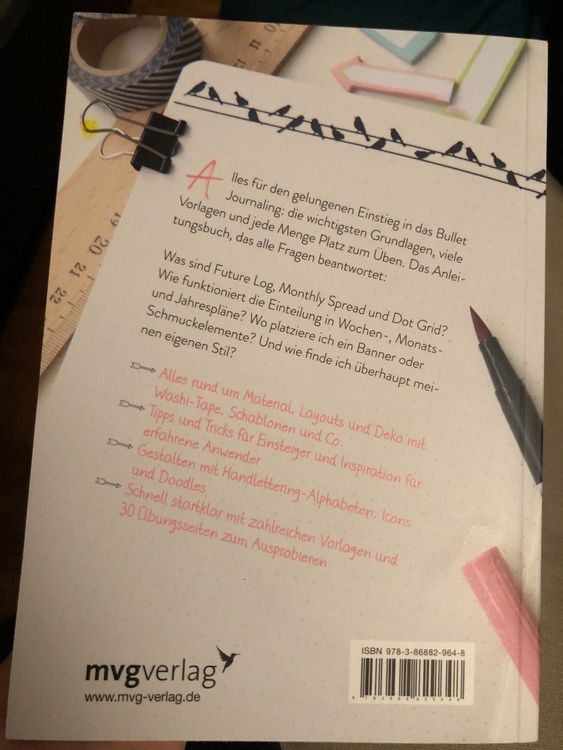 Alles für den gelungenen Einstieg in das Bullet
Journaling: die wichtigsten Grundlagen, viele
Vorlagen und jede Menge Platz zum Üben. Das Anlei-
tungsbuch, das alle Fragen beantwortet:
Was sind Future Log, Monthly Spread und Dot Grid?
Wie funktioniert die Einteilung in Wochen-, Monats-
und Jahrespläne? Wo platziere ich ein Banner oder
Schmuckelemente? Und wie finde ich überhaupt mei-
nen eigenen Stil?
Alles rund um Material, Layouts und Deko mit
Washi-Tape, Schablonen und Co.
Tipps und Tricks für Einsteiger und Inspiration für
erfahrene Anwender
Gestalten mit Handlettering-Alphabeten, Icons
und Doodles
Schnell startklar mit zahlreichen Vorlagen und
30 Übungsseiten zum Ausprobieren
ISBN 978-3-86882-964-8
mvgverlag
www.mvg-verlag.de